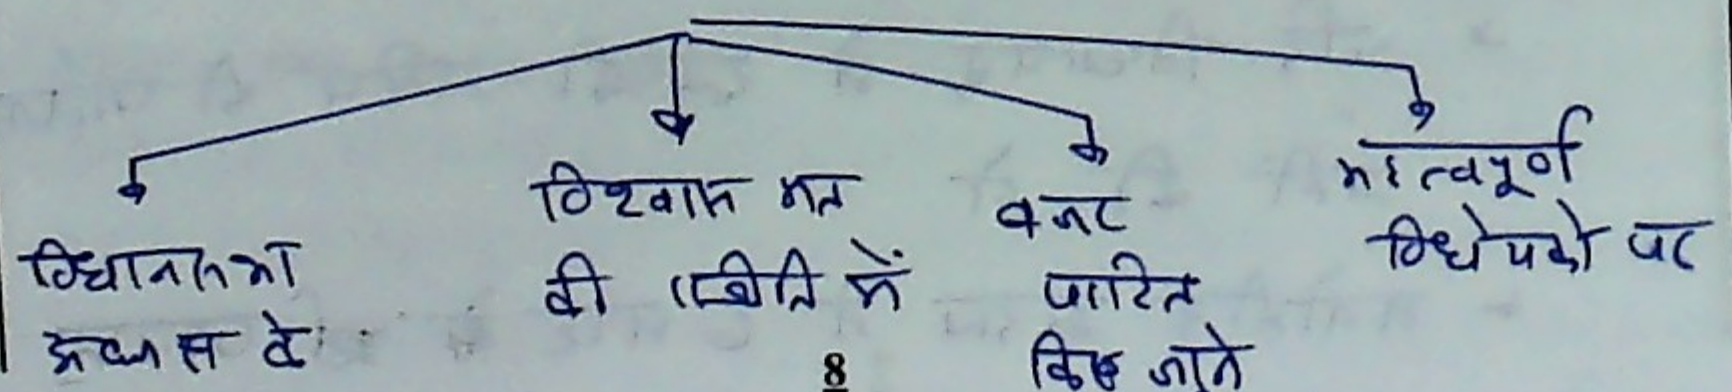 विधानसभा
अध्यक्ष के
विश्वास मत
की स्थिति में
बजट
पारित
किए जाने
महत्वपूर्ण
विधेयको पर
8